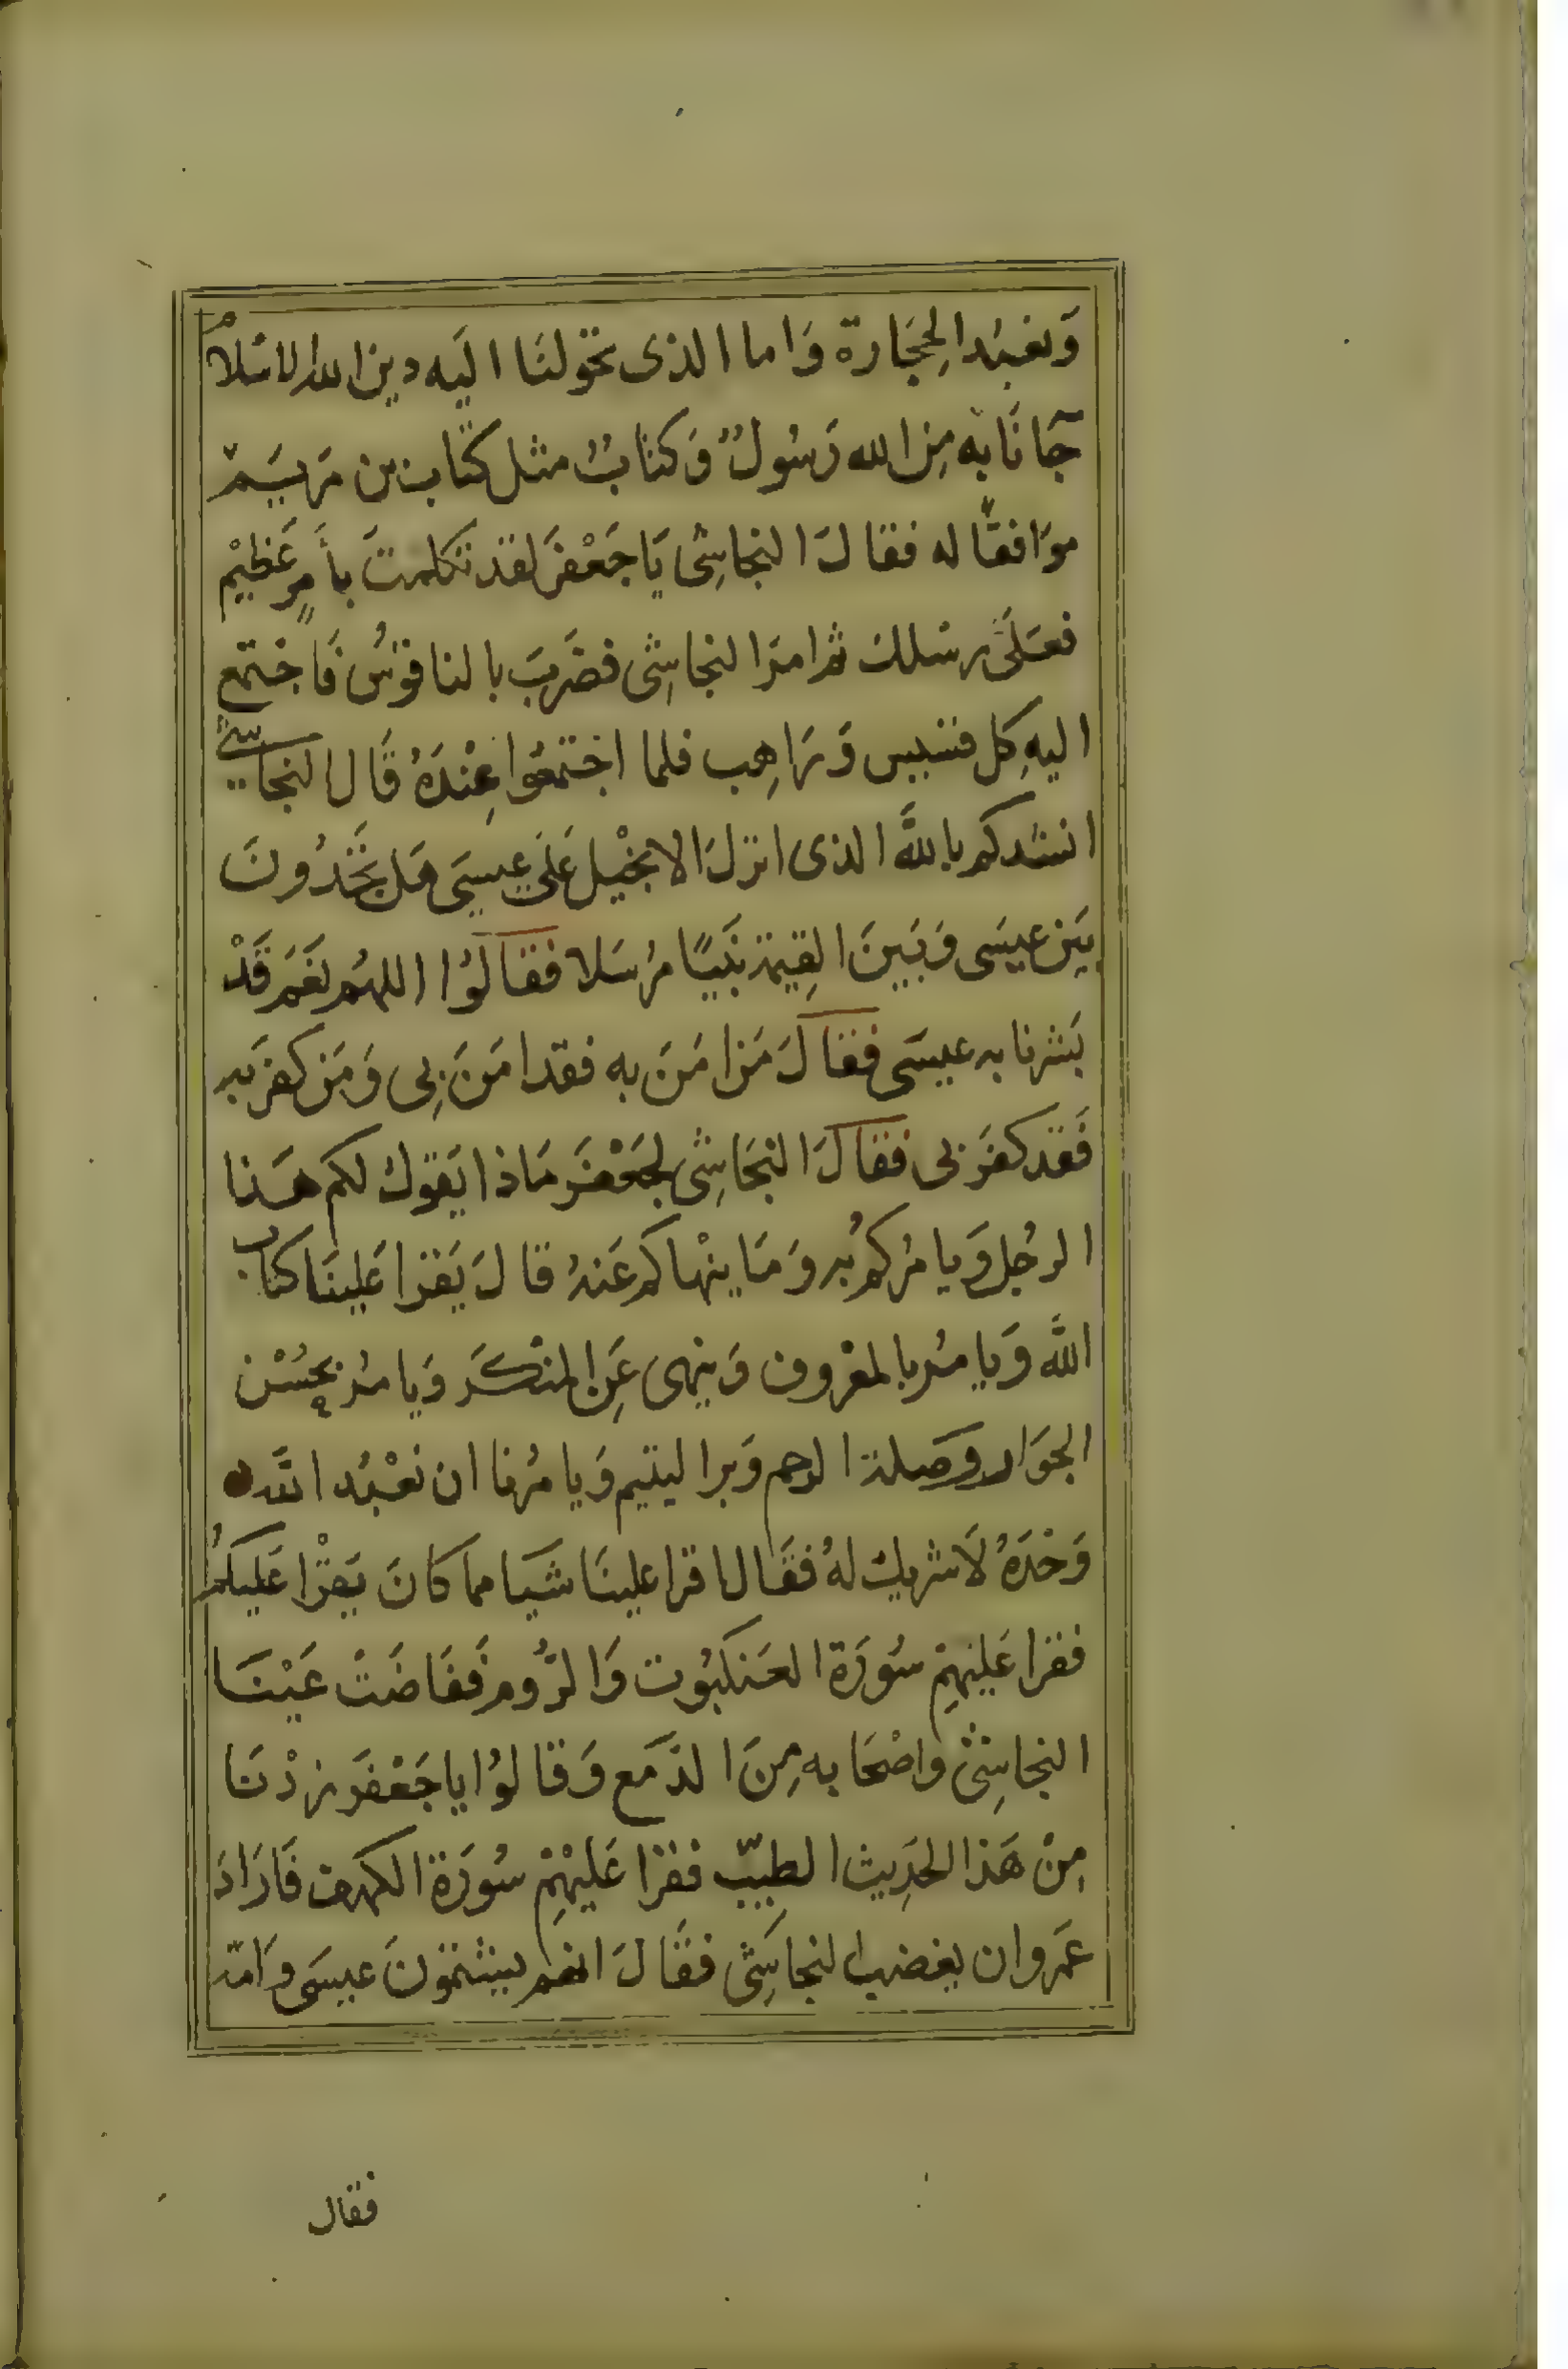 وَنعبُد الحِجَارة وَاما الذى تحولنَا اليَه دين الله الاسَلامُ
جَآنَا به مِن الله رَسُولٌ وَكتابٌ مثل كتاب بن مَريَم
موَافقًا له فقالَ النجاشِى يَا جَعْفَر لقد تكلمتَ بأَمرٍ عَظيْم
فعَلَى رسلك ثم امرَ النجاشِى فضَربَ بالناقوُس فَاجتمع
اليهِ كل قسيس وَرَاهِب فلما اجتمَعُوا عِنْدَهُ قَال النجاشى
انشدكم باللَّه الذى انزلَ الانجيْل عَلَى عِيسَى هَل تجَدُونَ
بَين عيسَى وَبَينَ القِيمة نَبيًا مرُسَلا فقالوُا اللهُم نَعَم قَدْ
بَشرنا به عيسَى فقالَ مَن امَنَ به فقد امَنَ بِى وَمَن كفرَ به
فَقد كفَر بى فقالَ النجَاشِى لجَعْفَر مَاذا يَقول لكم هَذا
الرجُل وَيامُركمُ به وَمَا ينْهاكم عَنهُ قالَ يَقرا عَلينَا كتاب
اللَّه وَيامُر بالمعْروف وَينهى عَنِ المنْكَر وَيامُر بحُسْن
الجوَار وصَلة الرحم وَبر اليتيم وَيامُرنا ان نعْبُد اللَّه
وَحْدَهُ لَا شريك لهُ فقَال اقرا علينَا شَيا مما كانَ يَقرْا عَليكمُ
فقرا عَليهِمْ سُورَة العَنكبوُت وَالرُّوم فَفَاضَتْ عَيْنَا
النجاشِىْ واصْحَابه مِنَ الدَمع وَقالوُا ياجَعْفَر زدْنَا
مِنْ هَذا الحَدِيث الطيّب فقرا عَليْهِمْ سُورَة الكهف فَارَادَ
عَمرو ان يغضب النجاشِى فقَالَ انهم يشتموُنَ عيسَى وَامّه
فقال